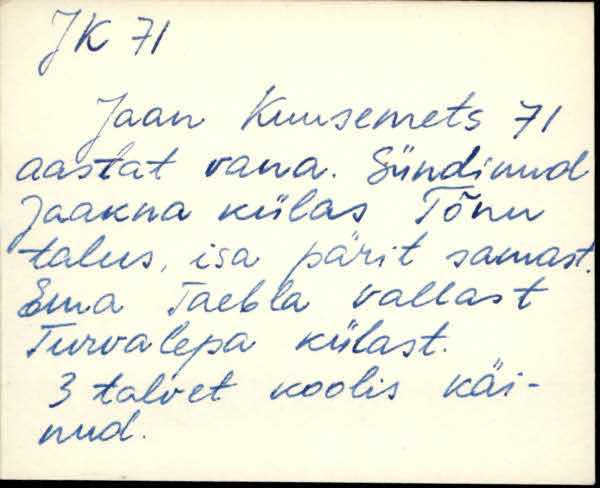 JK 71
Jaan Kuusemets 71
aastat vana. Sündinud
Jaakna külas Tõnu
talus, isa pärit samast.
Ema Taebla vallast
Turvalepa külast.
3 talvet koolis käi-
nud.